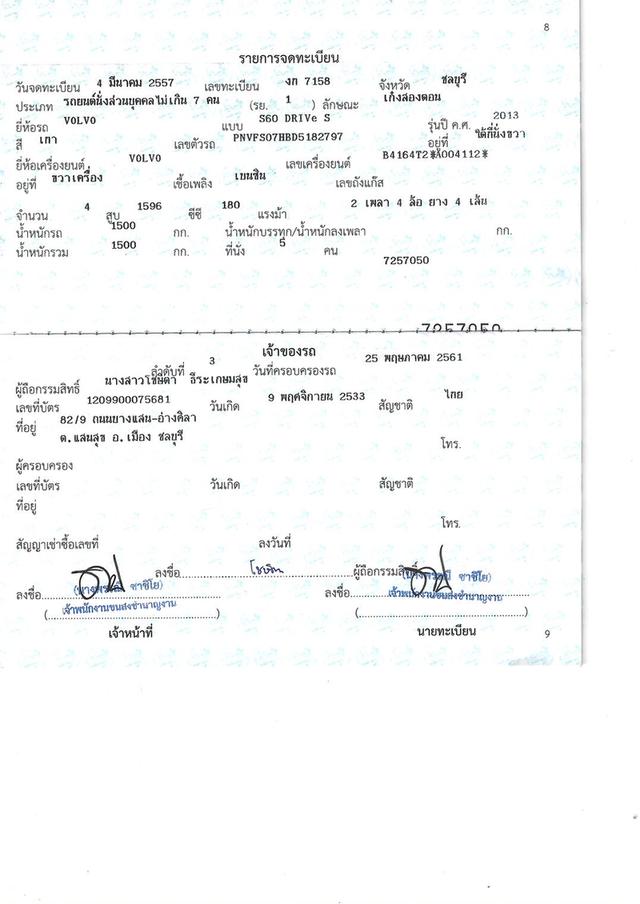 8
รายการจดทะเบียน
วันจดทะเบียน 4 มีนาคม 2557 เลขทะเบียน งก 7158 จังหวัด ชลบุรี
ประเภท รถยนต์นั่งส่วนบุคคลไม่เกิน 7 คน (รย. 1 ) ลักษณะ เก๋งสองตอน
ยี่ห้อรถ VOLVO แบบ S60 DRIVe S รุ่นปี ค.ศ. 2013
สี เทา เลขตัวรถ PNVFS07HBD5182797 อยู่ที่ ใต้ที่นั่งขวา
ยี่ห้อเครื่องยนต์ VOLVO เลขเครื่องยนต์ B4164T2*A004112*
อยู่ที่ ขวาเครื่อง เชื้อเพลิง เบนซิน เลขถังแก๊ส
จำนวน 4 สูบ 1596 ซีซี 180 แรงม้า 2 เพลา 4 ล้อ ยาง 4 เส้น
น้ำหนักรถ 1500 กก. น้ำหนักบรรทุก/น้ำหนักลงเพลา กก.
น้ำหนักรวม 1500 กก. ที่นั่ง 5 คน
7257050
7257050
เจ้าของรถ
ลำดับที่ 3 วันที่ครอบครองรถ 25 พฤษภาคม 2561
ผู้ถือกรรมสิทธิ์ นางสาวโชษิตา ธีระเกษมสุข
เลขที่บัตร 1209900075681 วันเกิด 9 พฤศจิกายน 2533 สัญชาติ ไทย
ที่อยู่ 82/9 ถนนบางแสน-อ่างศิลา
ต.แสนสุข อ.เมือง ชลบุรี โทร.
ผู้ครอบครอง
เลขที่บัตร วันเกิด สัญชาติ
ที่อยู่
โทร.
สัญญาเช่าซื้อเลขที่ ลงวันที่
ลงชื่อ โชษิตา ผู้ถือกรรมสิทธิ์
ลงชื่อ ลงชื่อ
เจ้าพนักงานขนส่งชำนาญงาน เจ้าพนักงานขนส่งชำนาญงาน
เจ้าหน้าที่ นายทะเบียน
9